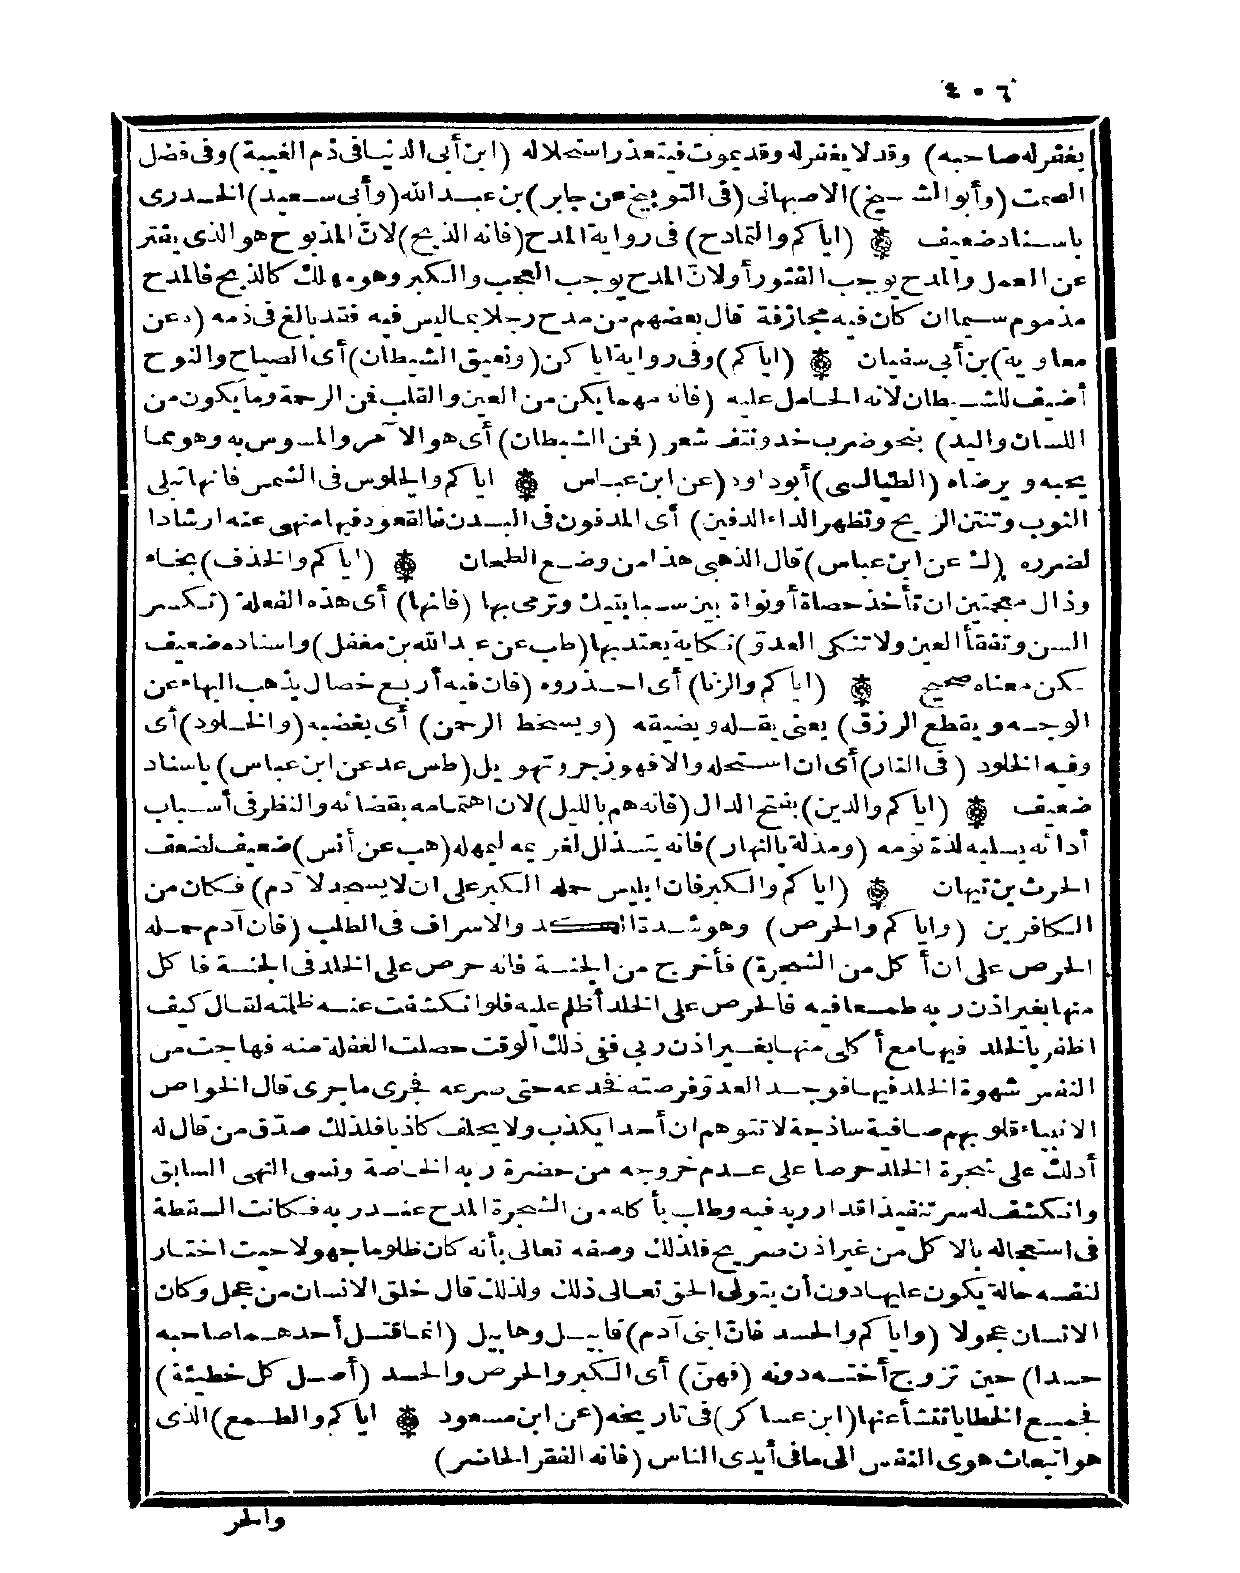 ٤٠٦
يغفر له صاحبه) وقد لا يغفر له وقد يموت فيتعذر استحلاله (ابن أبى الدنيا فى ذم الغيبة) وفى فضل
الصمت (وأبو الشيخ) الاصبهانى (فى التوبيخ عن جابر) بن عبد الله (وأبى سعيد) الخدرى
باسناد ضعيف ❁ (اياكم والتمادح) فى رواية المدح (فانه الذبح) لان المذبوح هو الذى يفتر
عن العمل والمدح يوجب الفتور أو لان المدح يوجب العجب والكبر وهو مهلك كالذبح فالمدح
مذموم سيما ان كان فيه مجازفة قال بعضهم من مدح رجلا بما ليس فيه فقد بالغ فى ذمه (ه عن
معاوية) بن أبى سفيان ❁ (اياكم) وفى رواية اياكن (ونعيق الشيطان) أى الصياح والنوح
أضيف للشيطان لانه الحامل عليه (فانه مهما يكن من العين والقلب فمن الرحمة وما يكون من
اللسان واليد) بنحو ضرب خد ونتف شعر (فمن الشيطان) أى هو الآمر والموسوس به وهو مما
يحبه ويرضاه (الطيالسى) أبو داود (عن ابن عباس ❁ اياكم والجلوس فى الشمس فانها تبلى
الثوب وتنتن الريح وتظهر الداء الدفين) أى المدفون فى البدن فالقعود فيها منهى عنه ارشادا
لضرره (ك عن ابن عباس) قال الذهبى هذا من وضع الطحان ❁ (اياكم والخذف) بخاء
وذال معجمتين ان تأخذ حصاة أو نواة بين سبابتيك وترمى بها (فانها) أى هذه الفعلة (تكسر
السن وتفقأ العين ولا تنكى العدو) نكاية يعتد بها (طب عن عبد الله بن مغفل) واسناده ضعيف
لكن معناه صحيح ❁ (اياكم والزنا) أى احذروه (فان فيه أربع خصال يذهب البهاء عن
الوجه ويقطع الرزق) يعنى يقله ويضيقه (ويسخط الرحمن) أى يغضبه (والخلود) أى
وفيه الخلود (فى النار) أى ان استحله والا فهو زجر وتهويل (طس عد عن ابن عباس) باسناد
ضعيف ❁ (اياكم والدين) بفتح الدال (فانه هم بالليل) لان اهتمامه بقضائه والنظر فى أسباب
أدائه يسلبه لذة نومه (ومذلة بالنهار) فانه يتذلل لغريمه ليمهله (هب عن أنس) ضعيف لضعف
الحرث بن تيهان ❁ (اياكم والكبر فان ابليس حمله الكبر على ان لا يسجد لآدم) فكان من
الكافرين (واياكم والحرص) وهو شدة الكد والاسراف فى الطلب (فان آدم حمله
الحرص على ان أكل من الشجرة) فأخرج من الجنة فانه حرص على الخلد فى الجنة فاكل
منها بغير اذن ربه طمعا فيه فالحرص على الخلد أظلم عليه فلو انكشفت عنه ظلمته لقال كيف
اظفر بالخلد فيها مع أكلى منها بغير اذن ربى ففى ذلك الوقت حصلت الغفلة منه فهاجت من
النفس شهوة الخلد فيها فوجد العدو فرصته فخدعه حتى صرعه فجرى ما جرى قال الخواص
الانبياء قلوبهم صافية ساذجة لا تتوهم ان أحدا يكذب ولا يحلف كاذبا فلذلك صدق من قال له
أدلك على شجرة الخلد حرصا على عدم خروجه من حضرة ربه الخاصة ونسى النهى السابق
وانكشف له سر تنفيذ اقدار ربه فيه وطلب بأكله من الشجرة المدح عند ربه فكانت السقطة
فى استعجاله بالاكل من غير اذن صريح فلذلك وصفه تعالى بأنه كان ظلوما جهولا حيث اختار
لنفسه حالة يكون عليها دون أن يتولى الحق تعالى ذلك ولذلك قال خلق الانسان من عجل وكان
الانسان عجولا (واياكم والحسد فان ابنى آدم) قابيل وهابيل (انما قتل أحدهما صاحبه
حسدا) حين تزوج أخته دونه (فهن) أى الكبر والحرص والحسد (أصل كل خطيئة)
فجميع الخطايا تنشأ عنها (ابن عساكر) فى تاريخه (عن ابن مسعود ❁ اياكم والطمع) الذى
هو انبعاث هوى النفس الى ما فى أيدى الناس (فانه الفقر الحاضر)
والحر